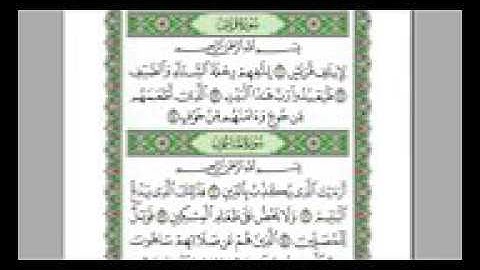 سورة قريش
بسم الله الرحمن الرحيم
لإيلاف قريش ۝ إيلافهم رحلة الشتاء والصيف
۝ فليعبدوا رب هذا البيت ۝ الذي أطعمهم
من جوع وءامنهم من خوف ۝
سورة الماعون
بسم الله الرحمن الرحيم
أرءيت الذي يكذب بالدين ۝ فذلك الذي يدع
اليتيم ۝ ولا يحض على طعام المسكين ۝ فويل
للمصلين ۝ الذين هم عن صلاتهم ساهون